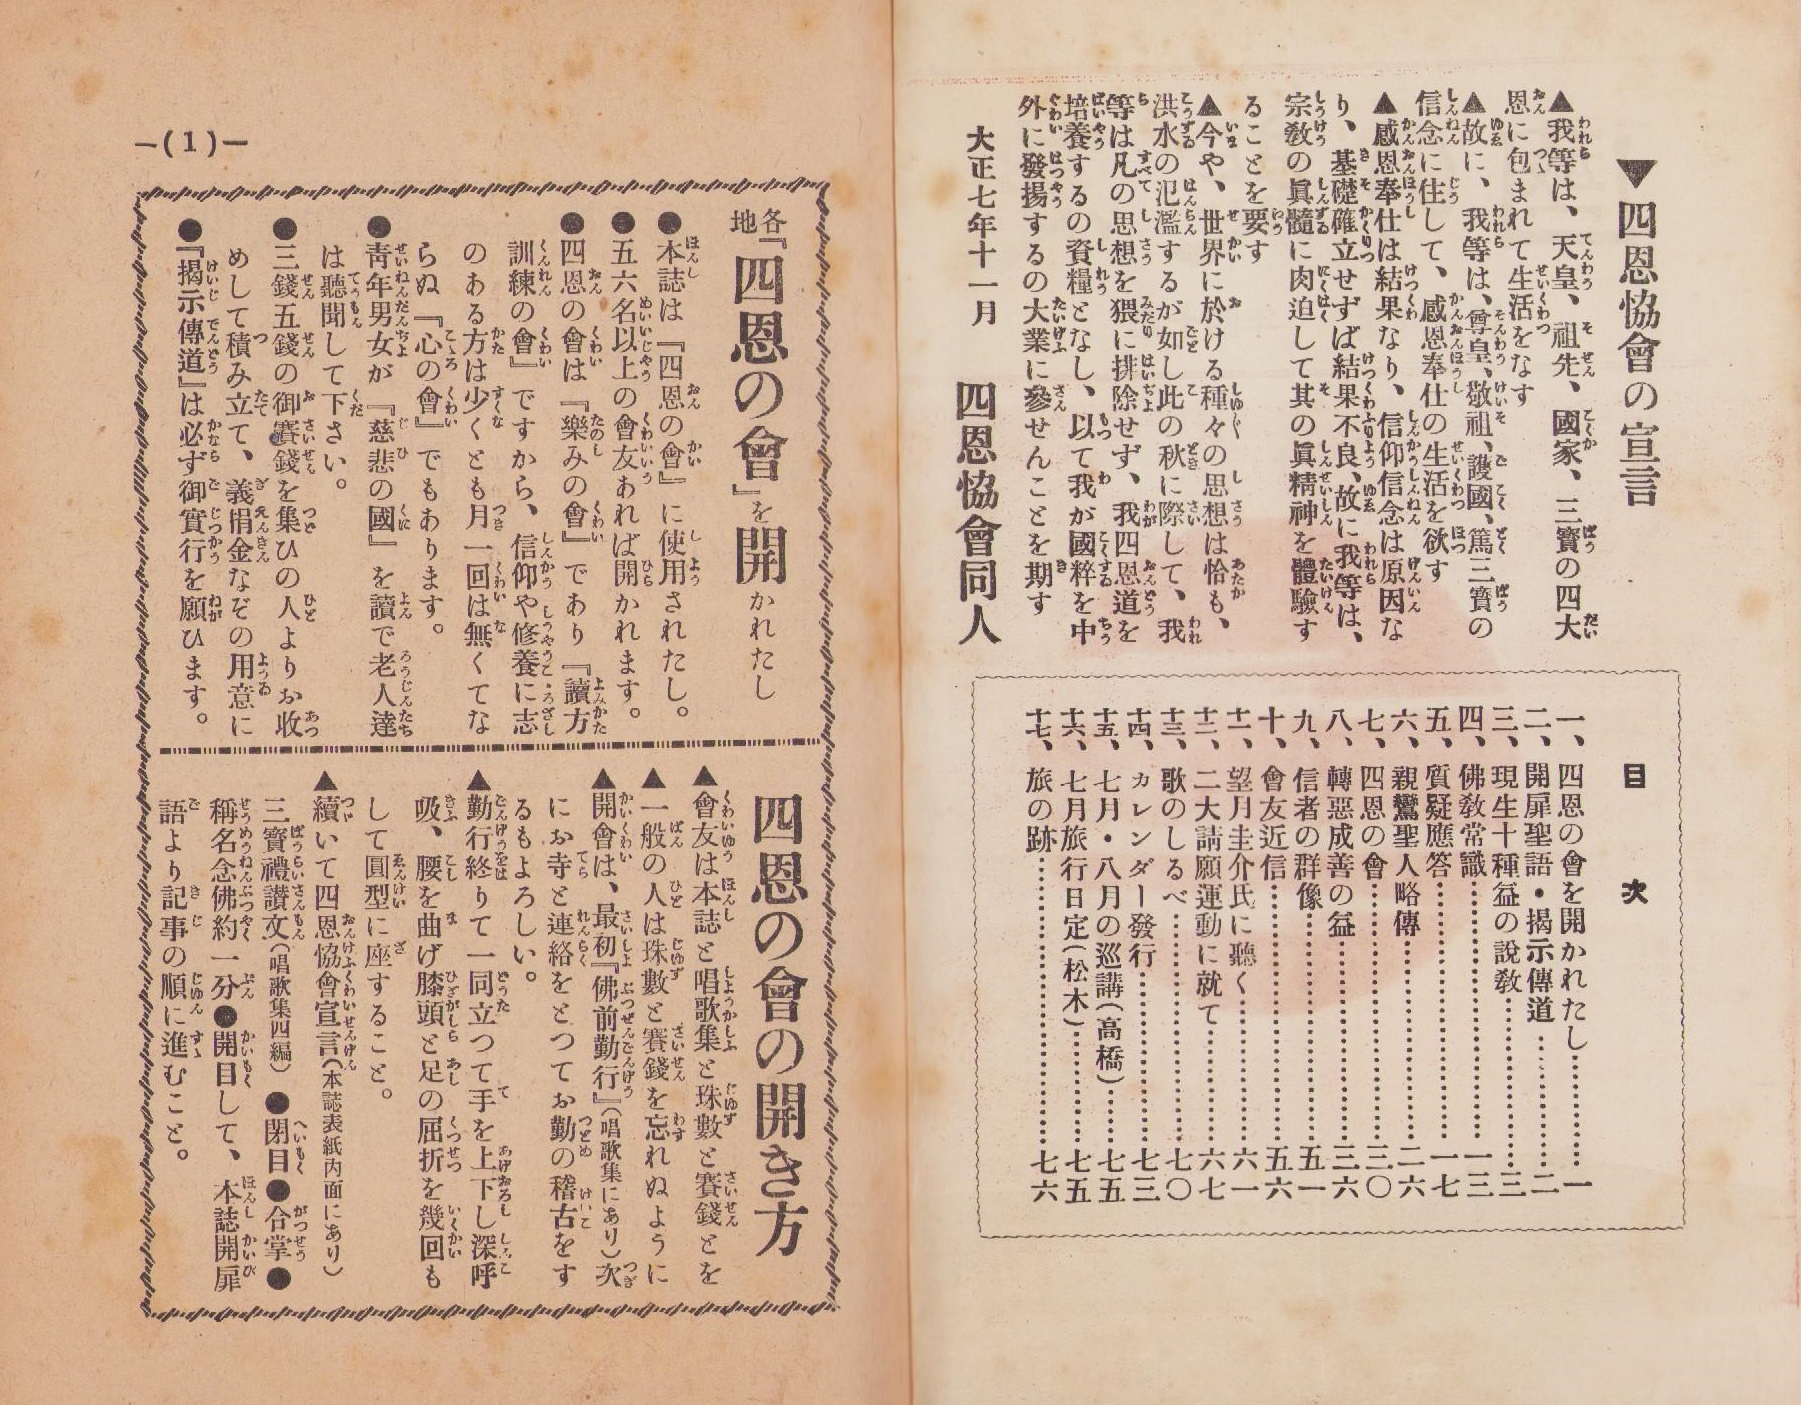 ▼四恩協會の宣言
▲我等は、天皇、祖先、國家、三寳の四大
恩に包まれて生活をなす
▲故に、我等は、尊皇、敬祖、護國、篤三寳の
信念に住して、感恩奉仕の生活を欲す
▲感恩奉仕は結果なり、信仰信念は原因な
り、基礎確立せずば結果不良、故に我等は、
宗敎の眞髓に肉迫して其の眞精神を體驗す
ることを要す
▲今や、世界に於ける種々の思想は恰も、
洪水の氾濫するが如し此の秋に際して、我
等は凡の思想を猥に排除せず、我四恩道を
培養するの資糧となし、以て我が國粹を中
外に發揚するの大業に參せんことを期す
大正七年十一月
四恩協會同人
目次
一、四恩の會を開かれたし…………一
二、開扉聖語・揭示傳道…………二
三、現生十種益の說敎…………三
四、佛敎常識…………一三
五、質疑應答…………一七
六、親鸞聖人略傳…………二六
七、四恩の會…………三〇
八、轉惡成善の益…………三六
九、信者の群像…………五一
十、會友近信…………五六
十一、望月圭介氏に聽く…………六一
十二、二大請願運動に就て…………六七
十三、歌のしるべ…………七〇
十四、カレンダー發行…………七三
十五、七月・八月の巡講(高橋)…………七五
十六、七月旅行日定(松木)…………七五
十七、旅の跡…………七六
—(1)—
各地『四恩の會』を開かれたし
●本誌は『四恩の會』に使用されたし。
●五六名以上の會友あれば開かれます。
●四恩の會は『樂みの會』であり『讀方
訓練の會』ですから、信仰や修養に志
のある方は少くとも月一回は無くてな
らぬ『心の會』でもあります。
●靑年男女が『慈悲の國』を讀で老人達
は聽聞して下さい。
●三錢五錢の御賽錢を集ひの人よりお收
めして積み立て、義捐金なぞの用意に
●『揭示傳道』は必ず御實行を願ひます。
四恩の會の開き方
▲會友は本誌と唱歌集と珠數と賽錢とを
▲一般の人は珠數と賽錢を忘れぬように
▲開會は、最初『佛前勤行』(唱歌集にあり)次
にお寺と連絡をとつてお勤の稽古をす
るもよろしい。
▲勤行終りて一同立つて手を上下し深呼
吸、腰を曲げ膝頭と足の屈折を幾回も
して圓型に座すること。
▲續いて四恩協會宣言(本誌表紙内面にあり)
三寳禮讃文(唱歌集四編)●閉目●合掌●
稱名念佛約一分●開目して、本誌開扉
語より記事の順に進むこと。